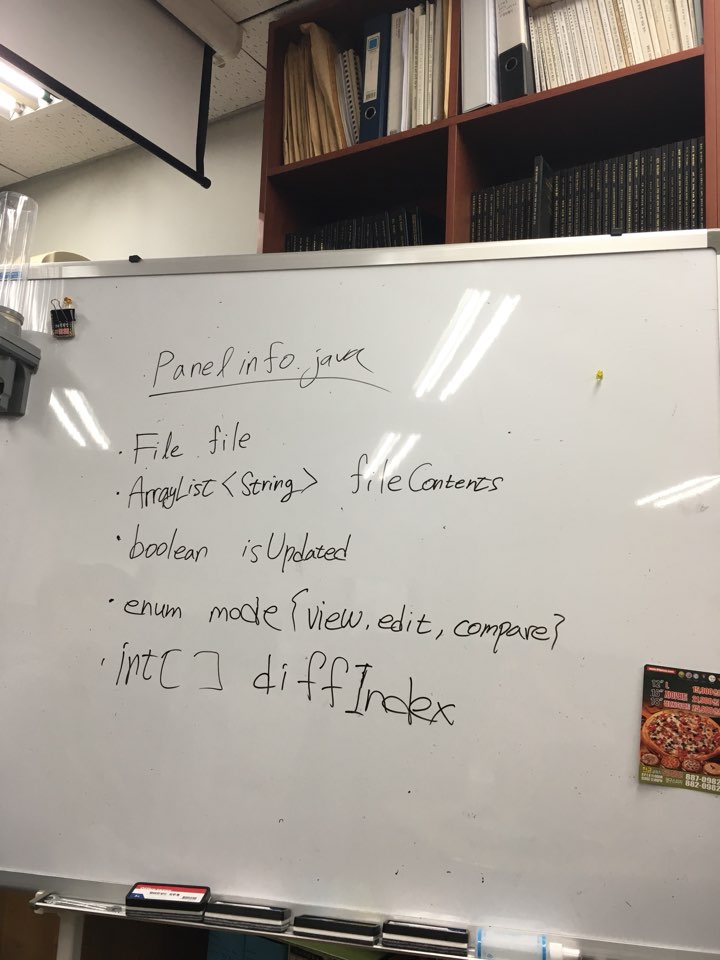 Panelinfo.java
· File file
· ArrayList<String> fileContents
· boolean isUpdated
· enum mode{view, edit, compare}
· int[] diffIndex
887-0982
882-0982